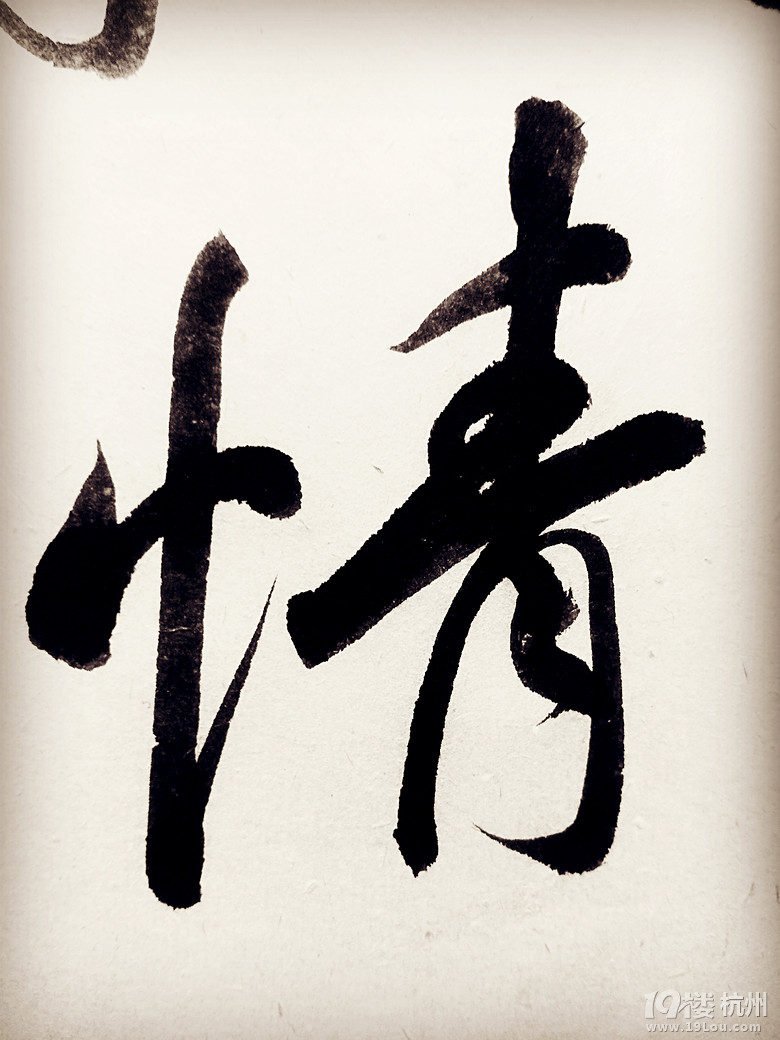 情
19楼 杭州
www.19lou.com